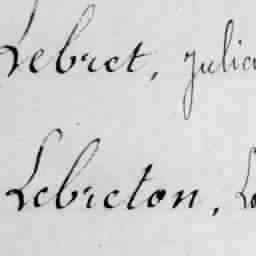 Lebret, Julia
Lebreton, Lo